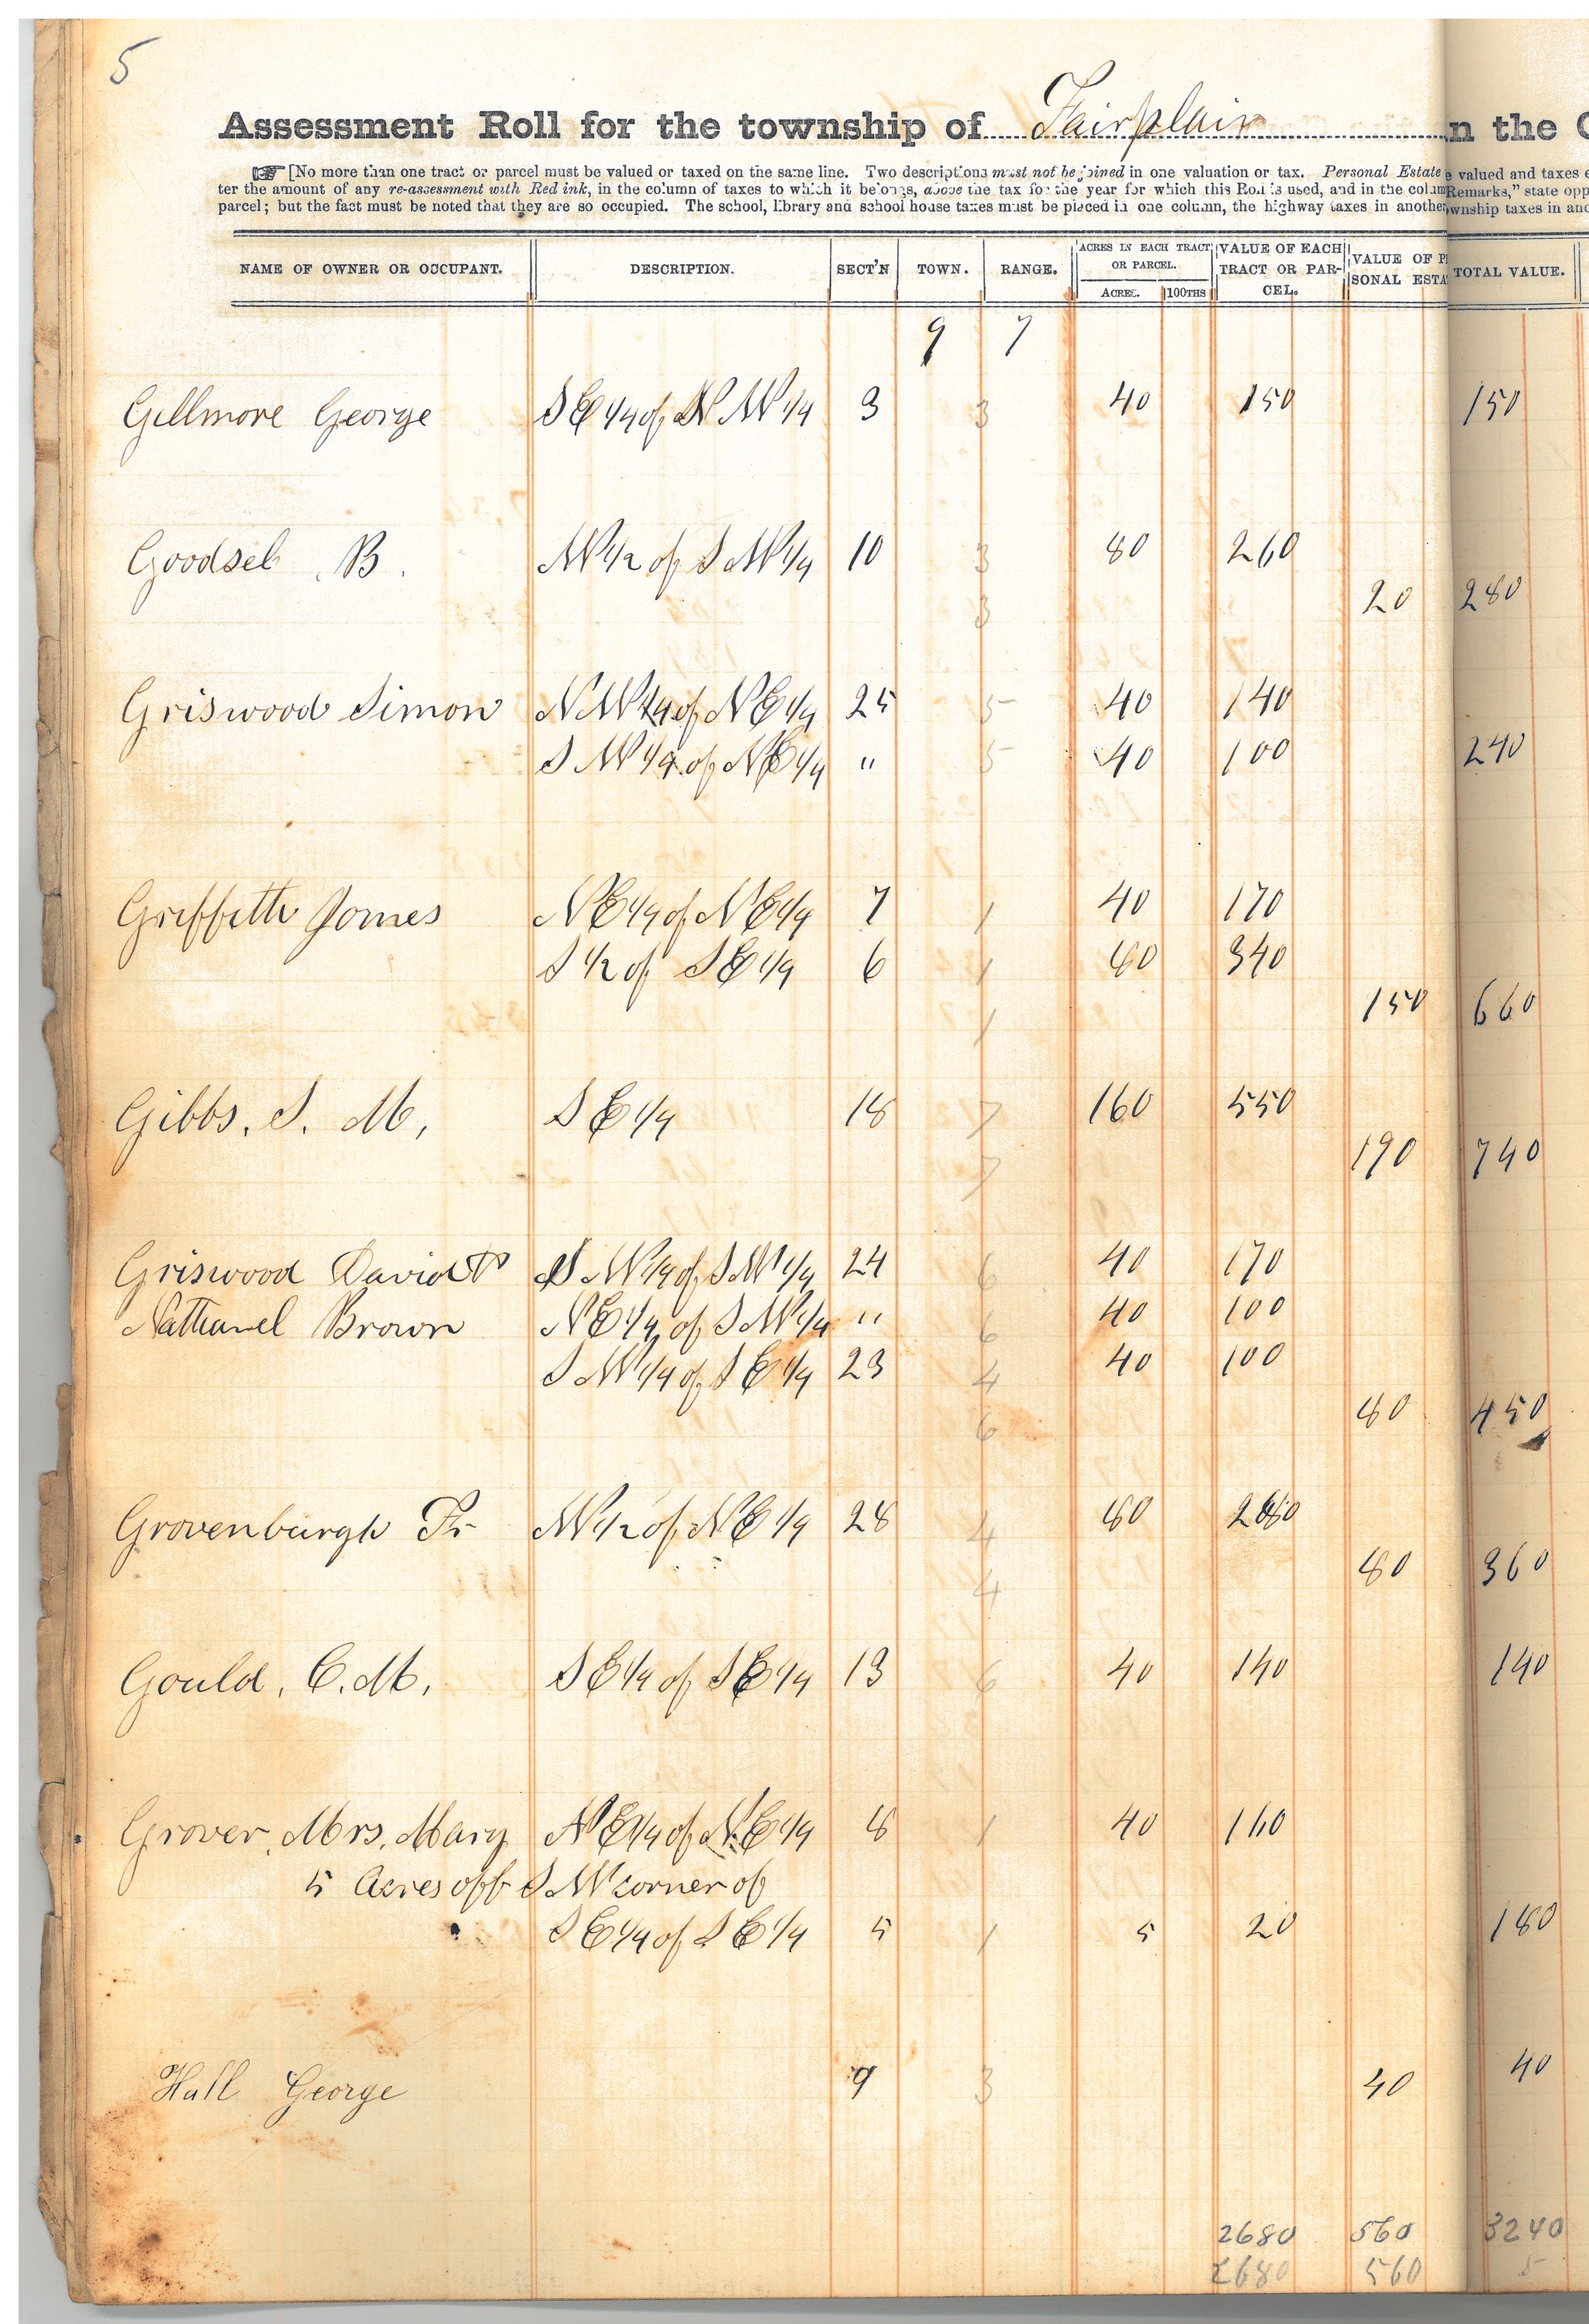 5
Assessment Roll for the township of Fairplain n the C
[No more than one tract or parcel must be valued or taxed on the same line. Two descriptions must not be joined in one valuation or tax. Personal Estate e valued and taxes e
ter the amount of any re-assessment with Red ink, in the column of taxes to which it belongs, above the tax for the year for which this Roll is used, and in the colum Remarks," state opp
parcel; but the fact must be noted that they are so occupied. The school, library and school house taxes must be placed in one column, the highway taxes in another, wnship taxes in and
NAME OF OWNER OR OCCUPANT. DESCRIPTION. SECT'N TOWN. RANGE. ACRES IN EACH TRACT OR PARCEL. ACRES. 100THS VALUE OF EACH TRACT OR PARCEL. VALUE OF P SONAL ESTA TOTAL VALUE.
9 7
Gillmore George SE 1/4 of NW 1/4 3 3 40 150 150
Goodsel B. W 1/2 of SW 1/4 10 3 80 260
3 20 280
Griswood Simon NW 1/4 of NE 1/4 25 5 40 140
SW 1/4 of NE 1/4 " 5 40 100 240
Griffeth James NE 1/4 of NE 1/4 7 1 40 170
S 1/2 of SE 1/4 6 1 80 340
1 150 660
Gibbs, S. M, SE 1/4 18 7 160 550
7 190 740
Griswood David & SW 1/4 of SW 1/4 24 6 40 170
Nathanel Brown NE 1/4 of SW 1/4 " 6 40 100
SW 1/4 of SE 1/4 23 4 40 100
6 80 450
Grovenburgh Fr W 1/2 of NE 1/4 28 4 80 280
4 80 360
Gould, C. M, SE 1/4 of SE 1/4 13 6 40 140 140
Grover, Mrs. Mary NE 1/4 of NE 1/4 8 1 40 160
5 Acres off SW corner of
SE 1/4 of SE 1/4 5 1 5 20 180
Hall George 9 3 40 40
2680 560 3240
2680 560 5